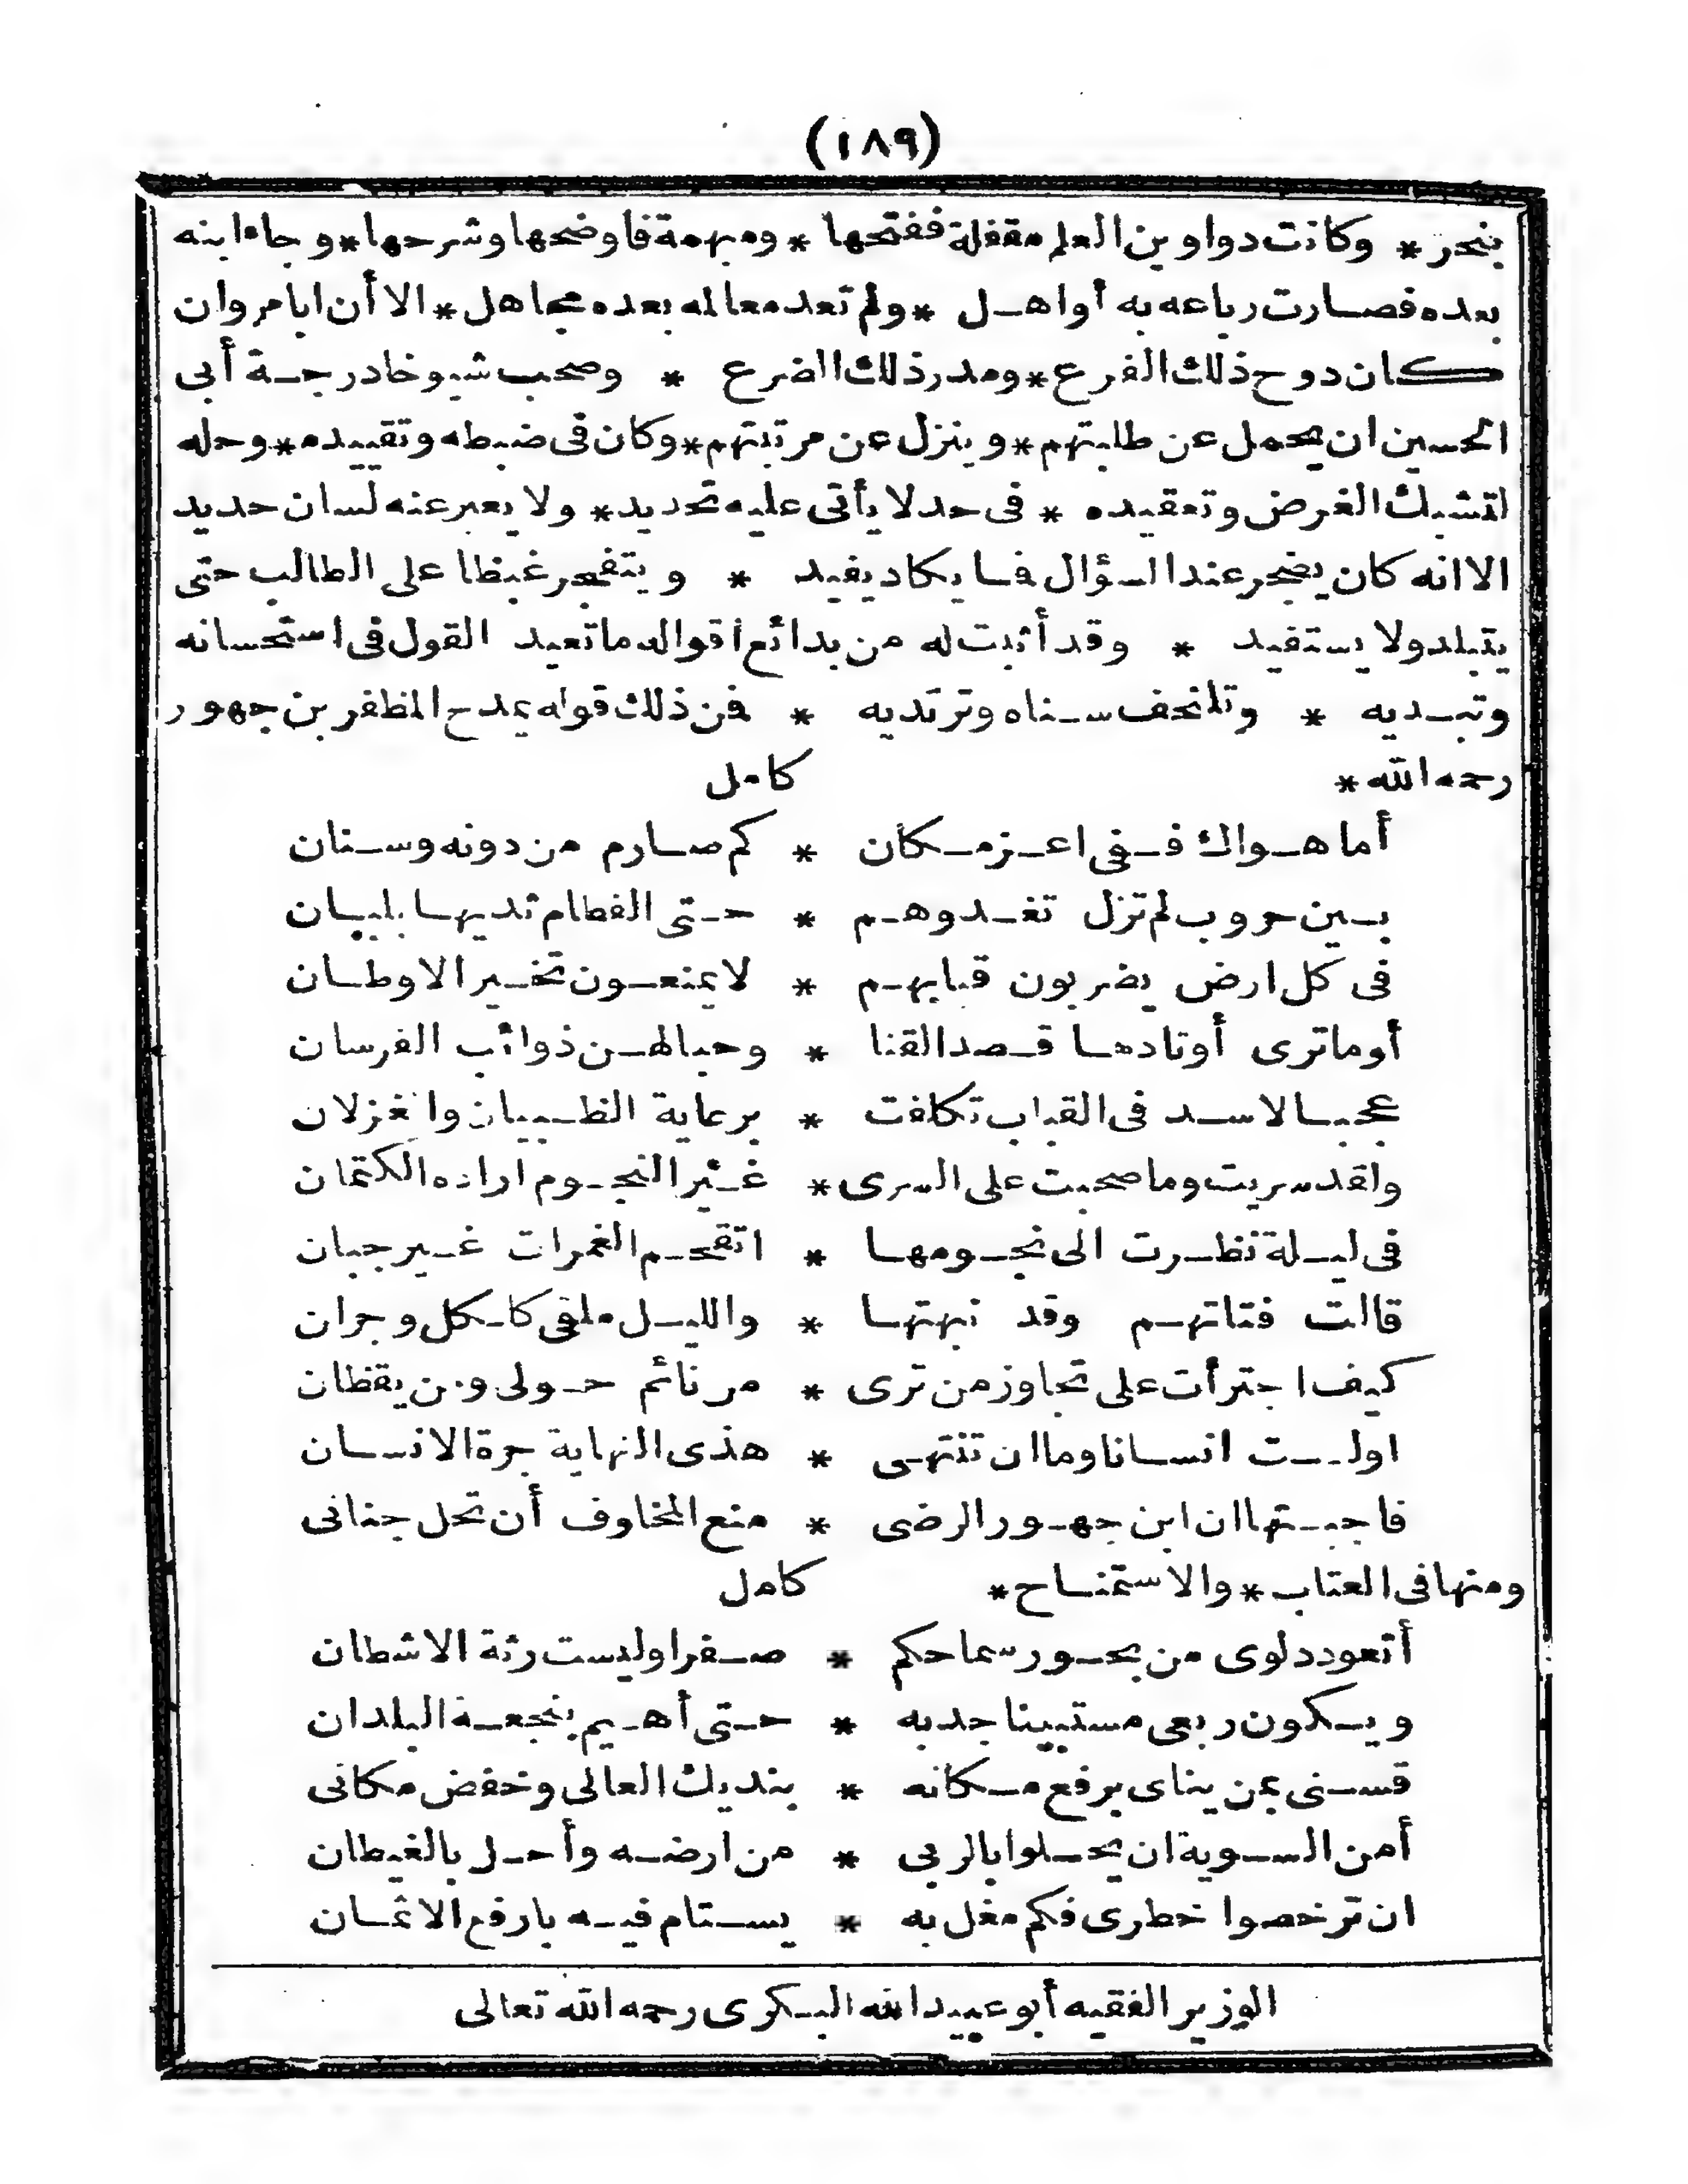 (١٨٩)
بنحر * وكانت دواوين العلم مقفلة ففتحها * ومبهمة فاوضحها وشرحها * وجاء ابنه
بعده فصارت رباعه به أواهل * ولم تعد معالمه بعده مجاهل * الا أن ابا مروان
كان دوح ذلك الفرع * ومدر ذلك الضرع * وصحب شيوخا درجة أبى
الحسين ان يحمل عن طلبتهم * وينزل عن مرتبتهم * وكان فى ضبطه وتقييده * وحله
لتشبك الغرض وتعقيده * فى حد لا يأتى عليه تحديد * ولا يعبر عنه لسان حديد
الا انه كان يضجر عند السؤال فما يكاد يفيد * ويتفجر غيظا على الطالب حتى
يتبلد ولا يستفيد * وقد أثبت له من بدائع اقواله ما تعيد القول فى استحسانه
وتبديه * وتلتحف سناه وترتديه * فمن ذلك قوله يمدح المظفر بن جهور
رحمه الله * كامل
أما هواك ففى اعز مكان * كم صارم من دونه وسنان
بين حروب لم تزل تغدوهم * حتى الفطام ثديها بلبان
فى كل ارض يضربون قبابهم * لا يمنعون تخير الاوطان
أوما ترى أوتادها قصد القنا * وحبالهن ذوائب الفرسان
عجبا لاسد فى القباب تكلفت * برعاية الظبيان والغزلان
ولقد سريت وما صحبت على السرى * غير النجوم ارادة الكتمان
فى ليلة نظرت الى نجومها * اتقحم الغمرات غير جبان
قالت فتاتهم وقد نبهتها * والليل ملقى كلكل وجران
كيف اجترأت على تجاوز من ترى * من نائم حولى ومن يقظان
اولست انسانا وما ان تنتهى * هذى النهاية جرة الانسان
فاجبتها ان ابن جهور الرضى * منع المخاوف أن تحل جنانى
ومنها فى العتاب * والاستمناح * كامل
أتعود دلوى من بحور سماحكم * صفرا وليست رثة الاشطان
ويكون ربعى مستبينا جدبه * حتى أهيم بنجعة البلدان
قسنى بمن يناى برفع مكانه * بنديك العالى وخفض مكانى
أمن السوية ان يحلوا بالربى * من ارضه وأحل بالغيطان
ان ترخصوا خطرى فكم مغل به * يستام فيه بارفع الاثمان
الوزير الفقيه أبو عبيد الله البكرى رحمه الله تعالى